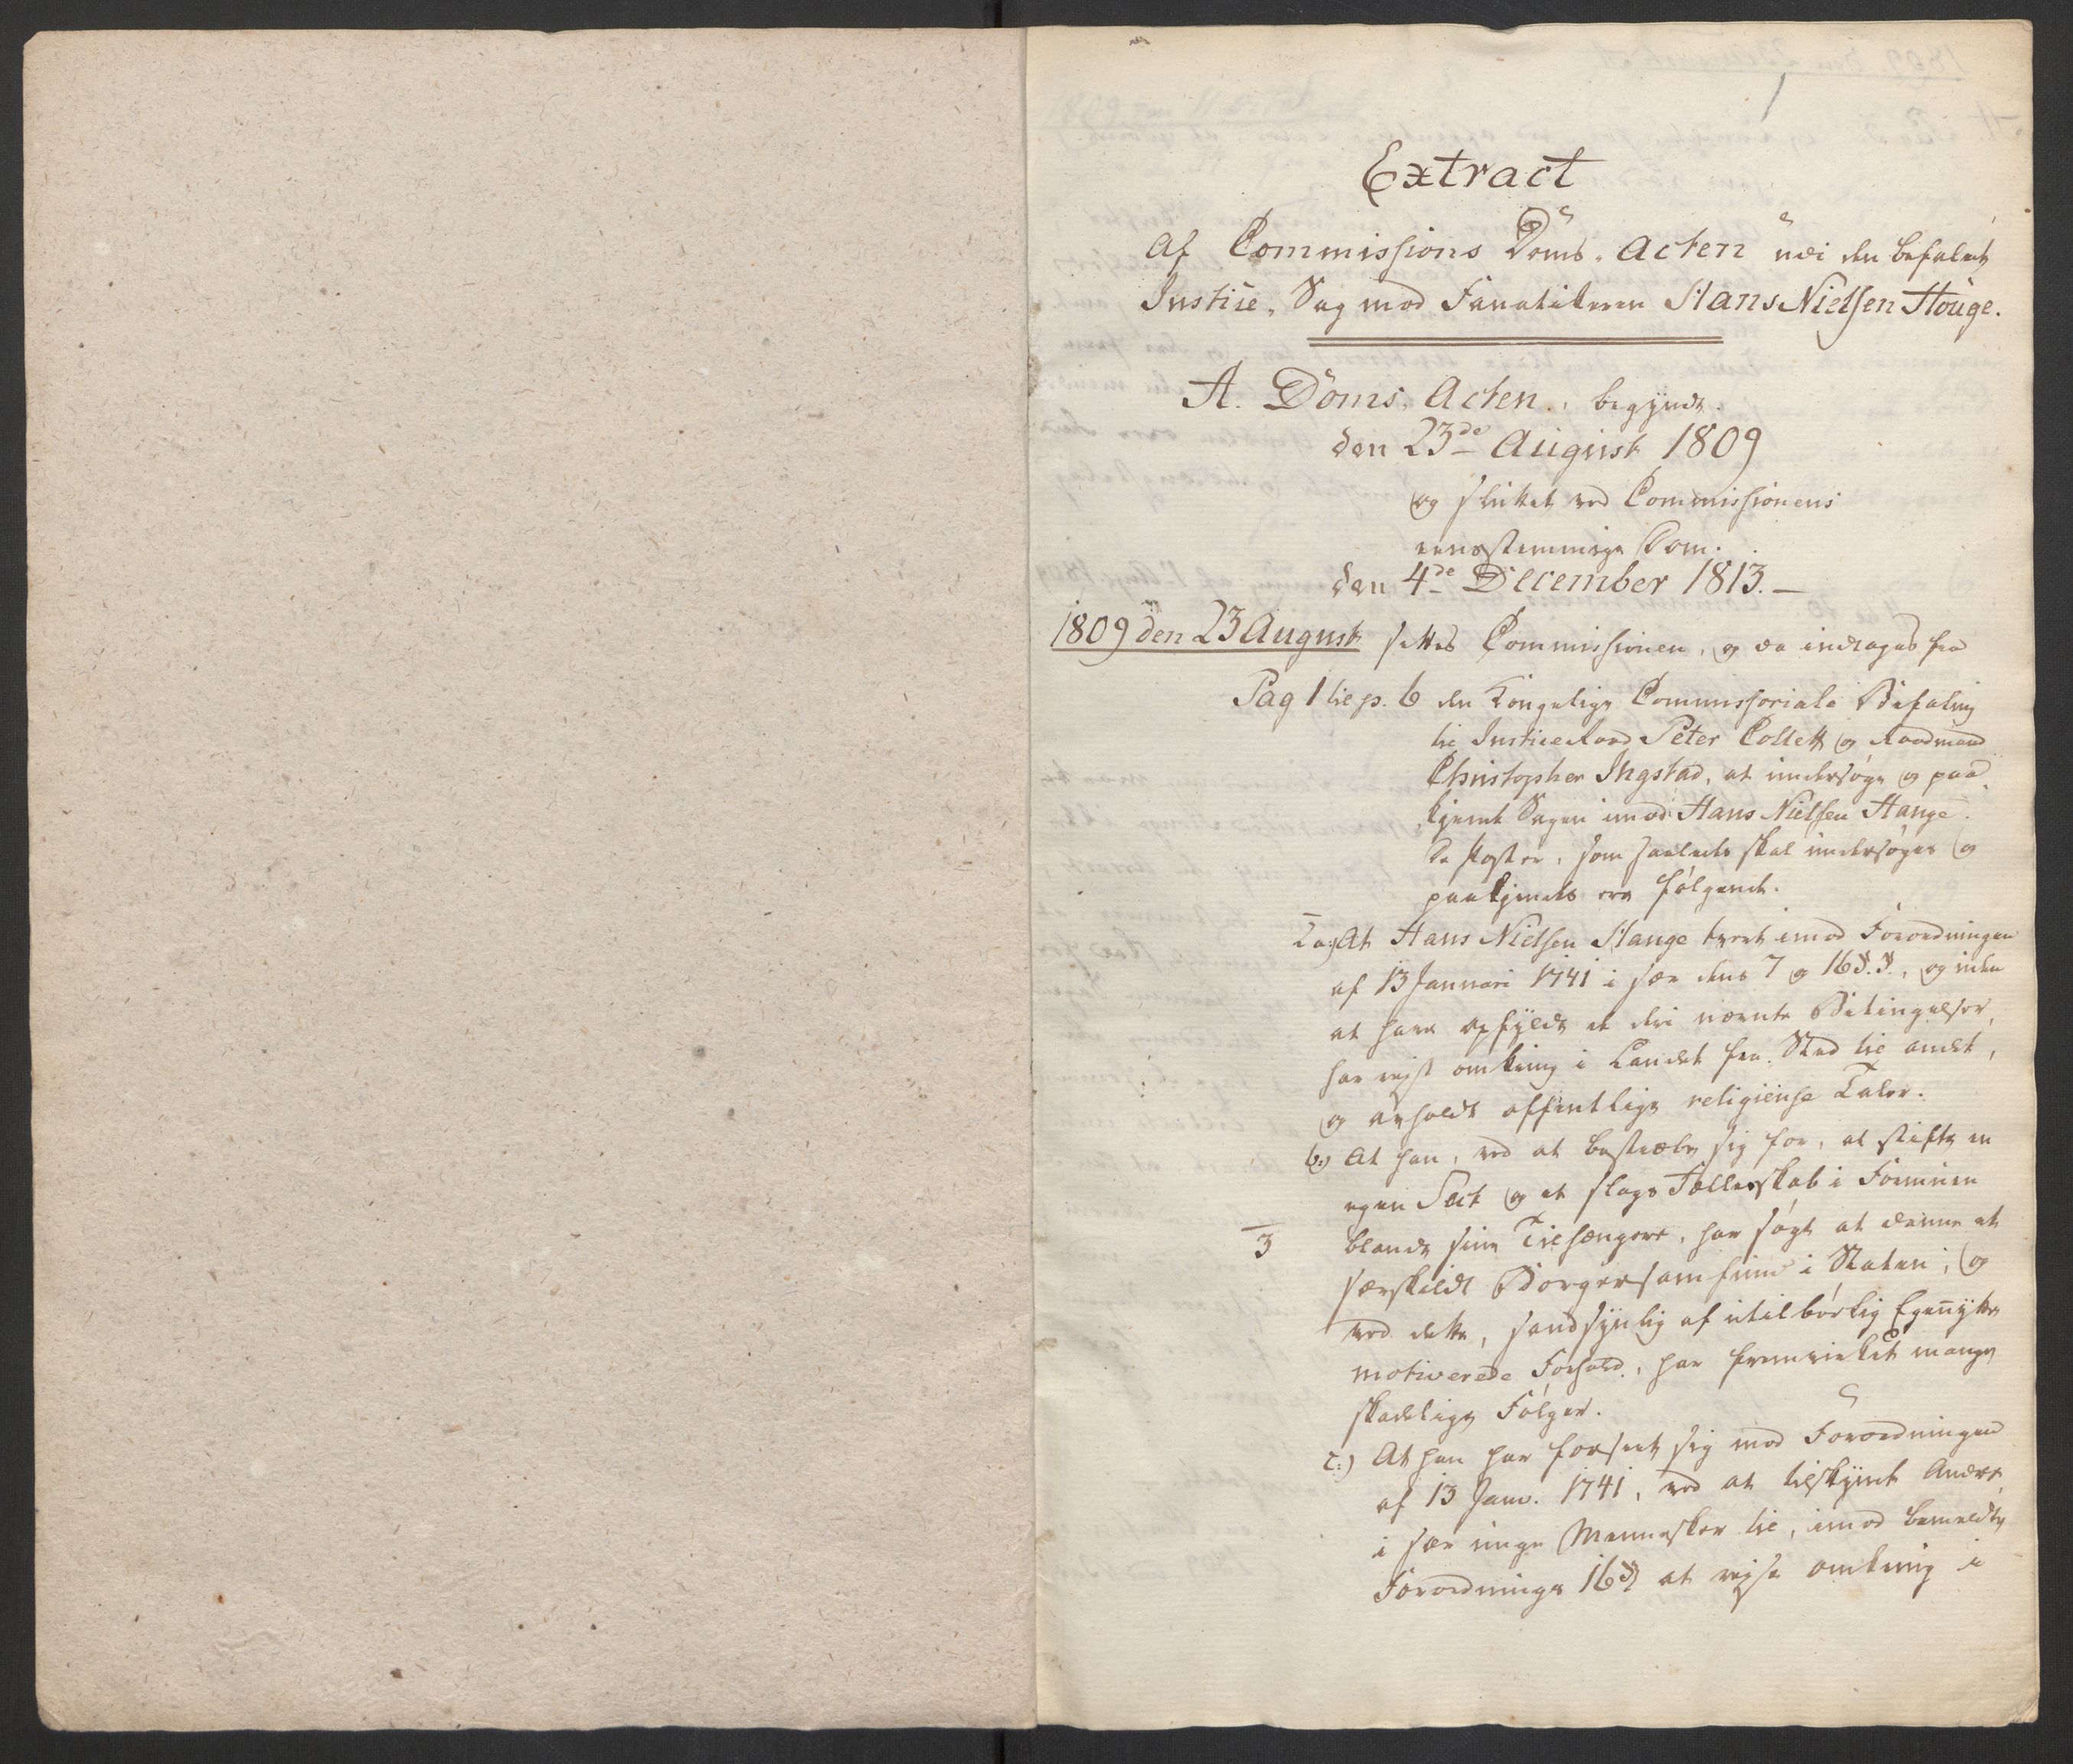 1
Extract
af Commissions Doms-Acten udi den befalede
Justice-Sag mod Fanatikeren Hans Nielsen Houge.
A. Doms-Acten, begyndt
den 23de August 1809
og sluttet ved Commissionens
eenstemmige Dom.
den 4de December 1813.—
1809 den 23 August settes Commissionen, og da indtages fra
Pag 1 til p. 6 den Kongelige Commissoriale Befaling
til Justiceraad Peter Collett og Raadmand
Christopher Ingstad, at undersøge og paa-
kjende Sagen imod Hans Nielsen Hauge.
De Poster, som saaledes skal undersøges og
paakjendes ere følgende.
a.) At Hans Nielsen Hauge tvert imod Forordningen
af 13 Januari 1741 i sær dens 7 og 16 §.§., og uden
at have opfyldt de deri nævnte Betingelser,
har rejst omkring i Landet fra Sted til andet,
og anholdt offentlige religieuse Taler.
b.) At han, ved at bestræbe sig for, at stifte en
egen Sect og et slags Fælleskab i Formuen
3 blandt sine Tilhængere, har søgt at danne et
særskildt Borgersamfund i Staten; og
ved dette, sandsynlig af utilbørlig Egennytte
motiverede Forhold, har fremvirket mange
skadelige Følger.
c.) At han har forseet sig mod Forordningen
af 13 Janv. 1741, ved at tilskynde Andre,
i sær unge Mennesker til, imod bemeldte
Forordnings 16 § at rejse omkring i